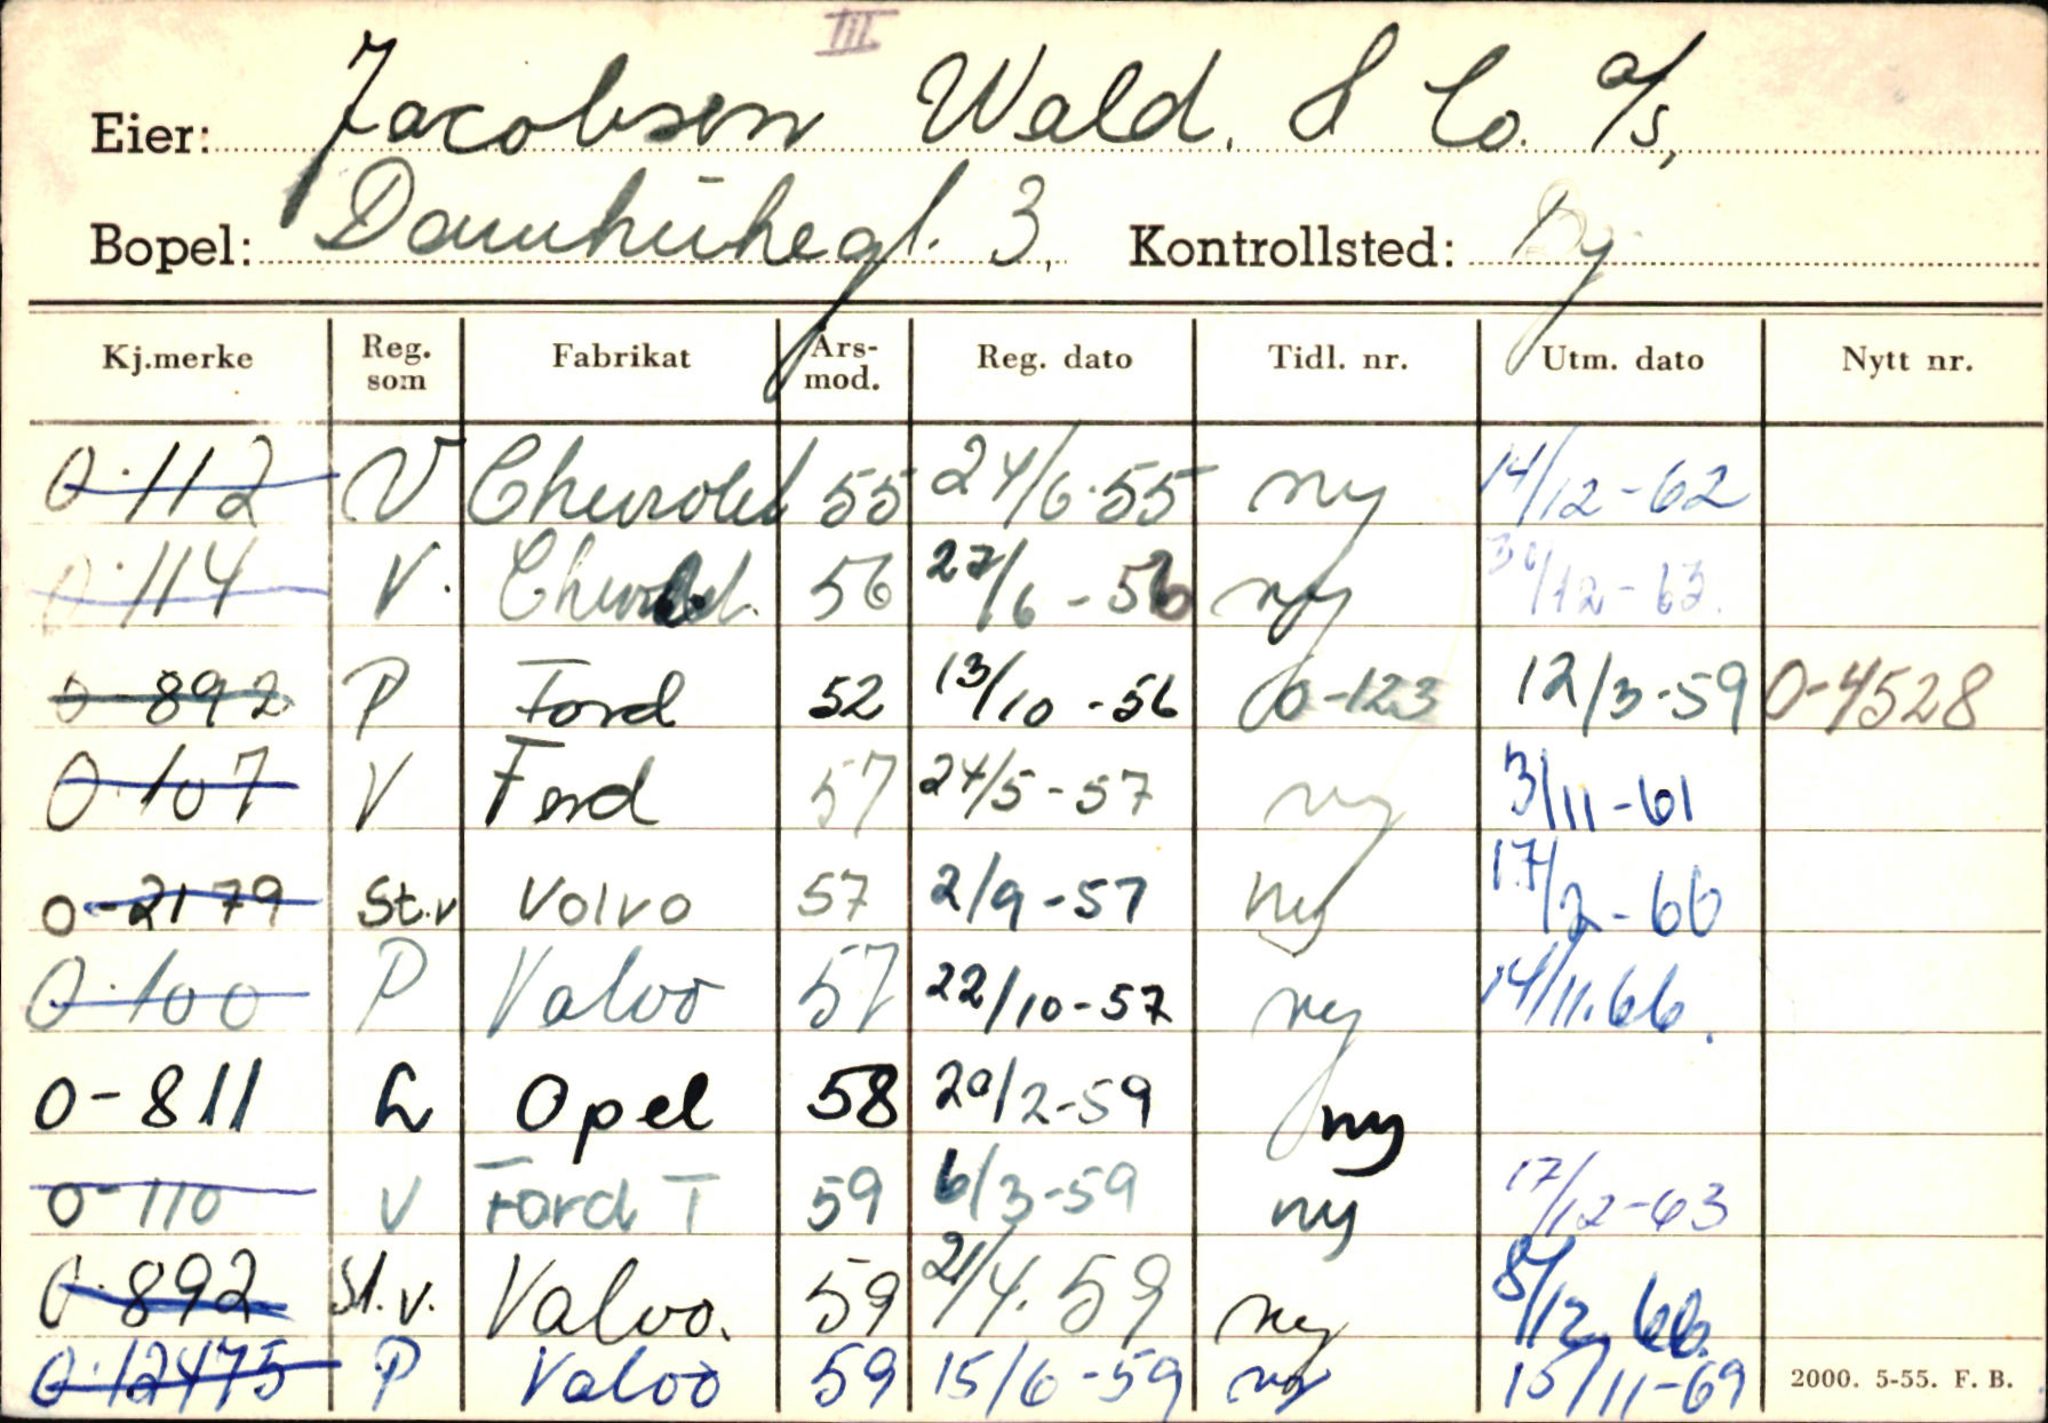 III.
Eier: Jacobsen Wald. & Co. a/s,
Bopel: 3, Kontrollsted: Dy
Kj.merke Reg. som Fabrikat Års-mod. Reg. dato Tidl. nr. Utm. dato Nytt nr.
O-112 V Chevrolet 55 24/6-55 ny 14/12-62
O-114 V. Chevrolet. 56 27/6-56 ny 30/12-63.
O-892 P Ford 52 13/10-56 O-123 12/3-59 O-4528
O-107 V Ford 57 24/5-57 ny 3/11-61
O-2179 St.v Volvo 57 2/9-57 ny 17/2-66
O-100 P Volvo 57 22/10-57 ny 14/11.66.
O-811 L Opel 58 20/2-59 ny
O-110 V Ford T 59 6/3-59 ny 17/12-63
O-892 St.v. Volvo. 59 21/4.59 ny 8/12 66.
O-12475 P Volvo 59 15/6-59 ny 15/11-69
2000. 5-55. F. B.